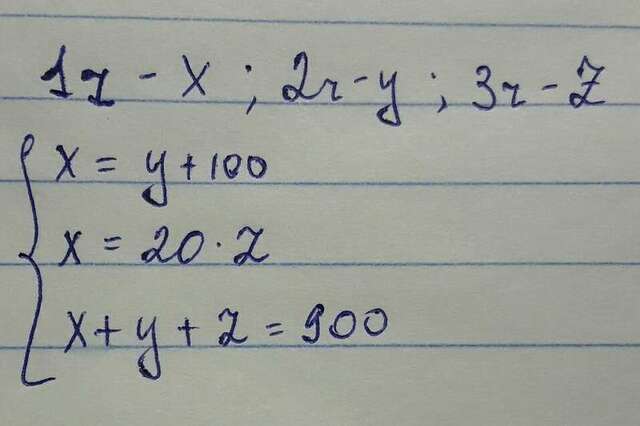 1г - x ; 2г - y ; 3г - z
x = y + 100
x = 20 · z
x + y + z = 900